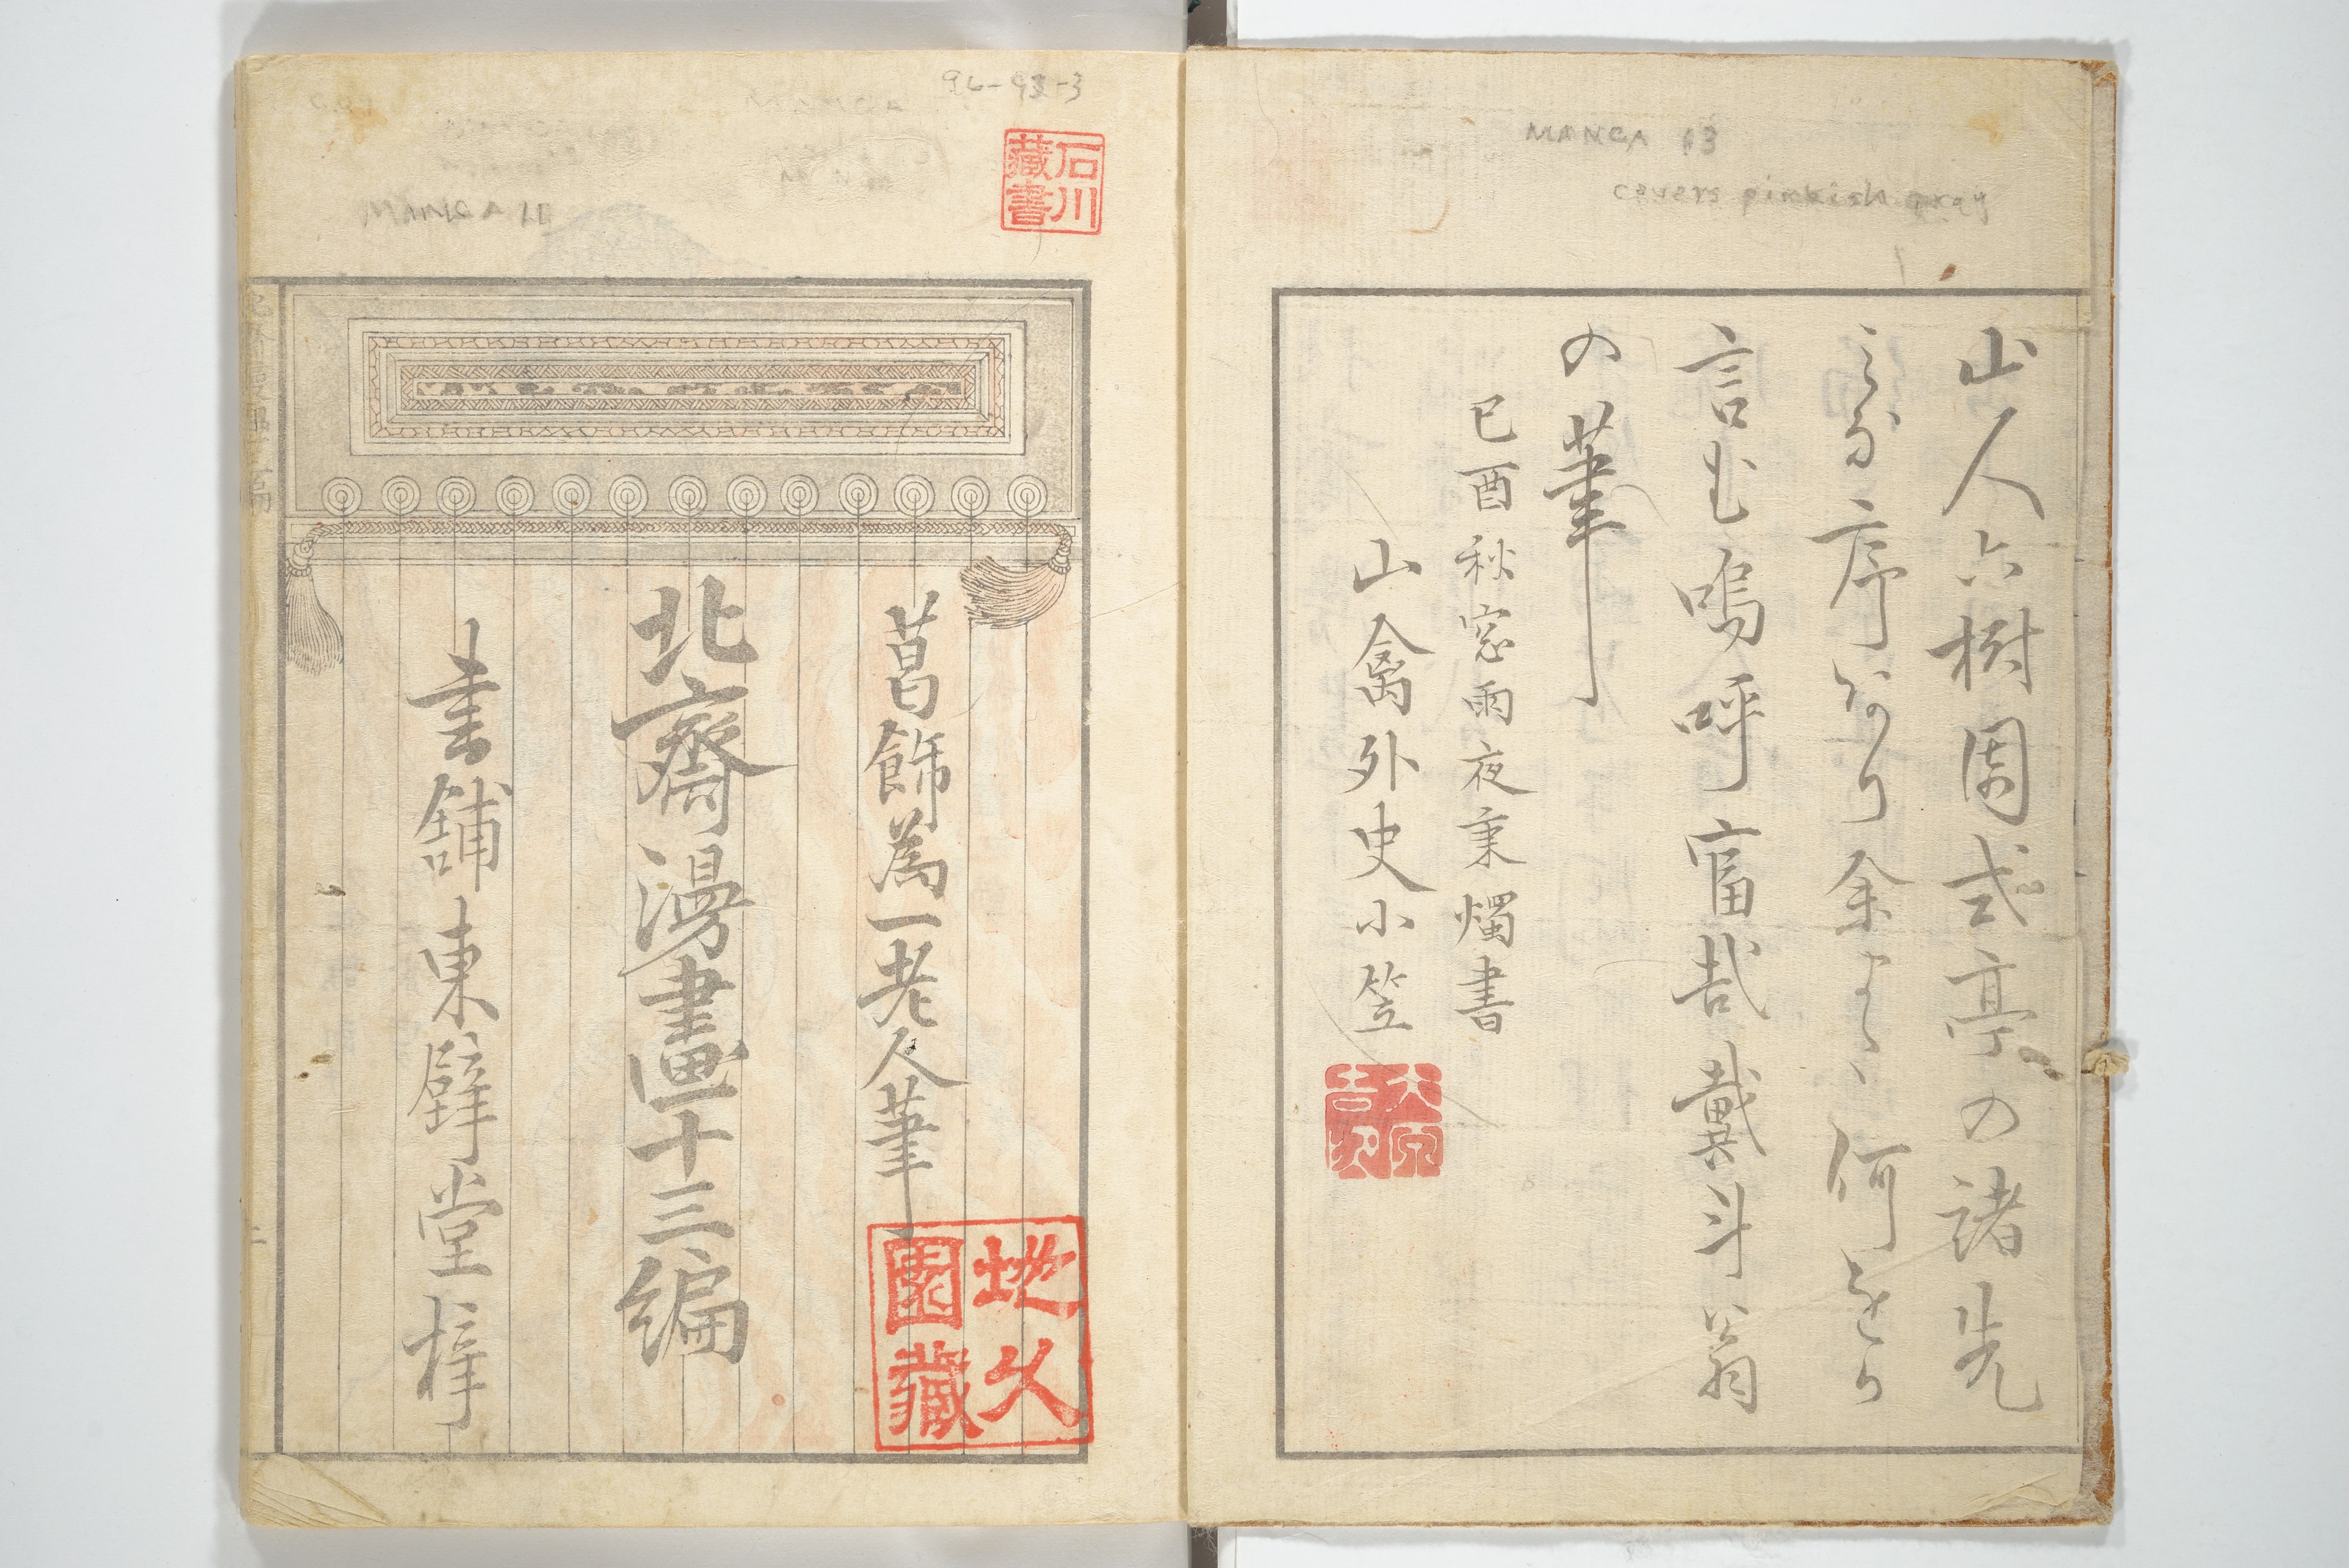 MANGA 13
covers pinkish gray
山人六樹園式亭の諸先
序あり余
何をか
言む嗚呼富哉戴斗翁
の筆
己酉秋窓雨夜秉燭書
山禽外史小笠
MANGA
石川
藏書
葛飾為一老人筆
北齋漫畫十三編
書舗東壁堂梓
地久
園藏